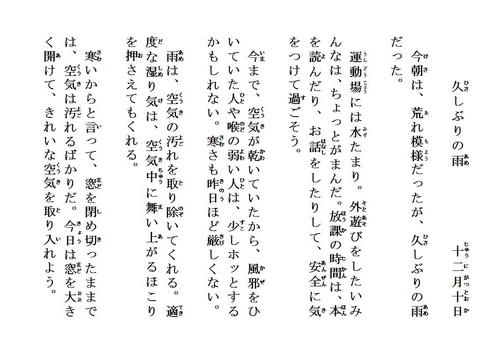 久しぶりの雨　十二月十日
今朝は、荒れ模様だったが、久しぶりの雨
だった。
運動場には水たまり。外遊びをしたいみ
んなは、ちょっとがまんだ。放課の時間は、本
を読んだり、お話をしたりして、安全に気
をつけて過ごそう。
今まで、空気が乾いていたから、風邪をひ
いていた人や喉の弱い人は、少しホッとする
かもしれない。寒さも昨日ほど厳しくない。
雨は、空気の汚れを取り除いてくれる。適
度な湿り気は、空気中に舞い上がるほこり
を押さえてもくれる。
寒いからと言って、窓を閉め切ったままで
は、空気は汚れるばかりだ。今日は窓を大き
く開けて、きれいな空気を取り入れよう。